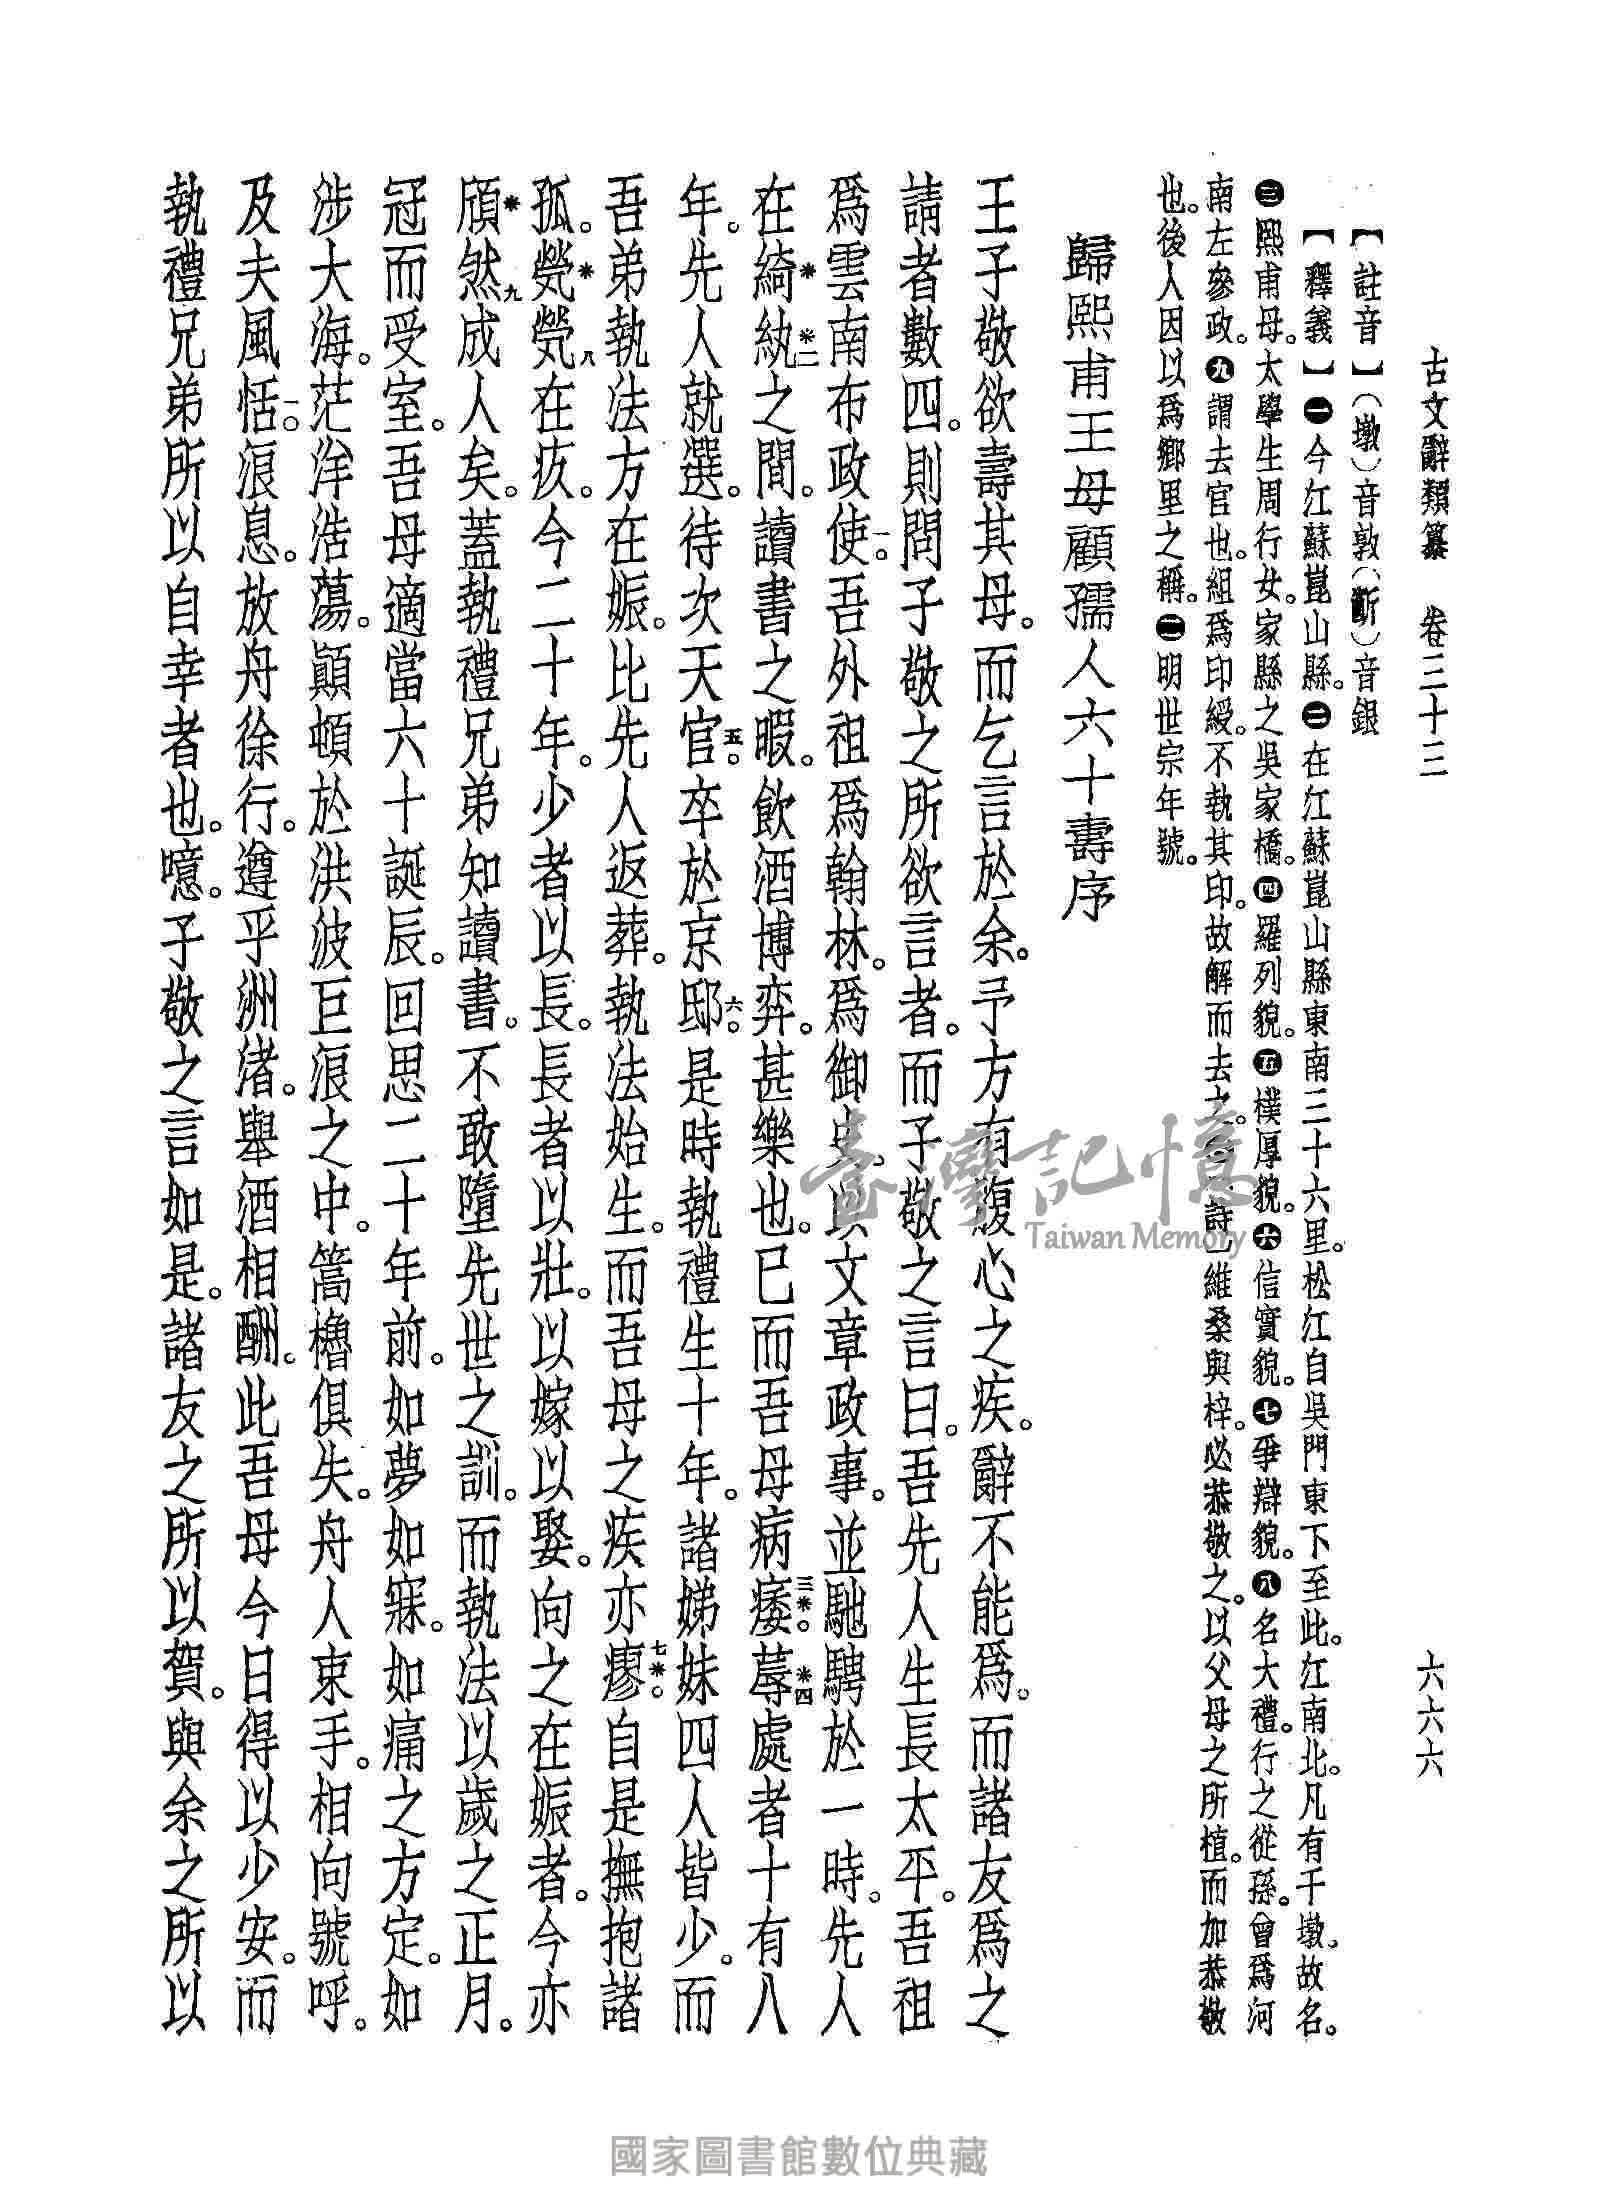 古文辭類纂　卷三十三　六六六
【註音】（墩）音敦（斷）音銀
【釋義】㊀今江蘇崑山縣。㊁在江蘇崑山縣東南三十六里。松江自吳門東下至此。江南北。凡有千墩。故名。
㊂熙甫母。太學生周行女。家縣之吳家橋。㊃羅列貌。㊄樸厚貌。㊅信實貌。㊆爭辯貌。㊇名大禮。行之從孫。曾爲河
南左參政。㊈謂去官也。組爲印綬。不執其印。故解而去之。㊉詩維桑與梓。必恭敬之。以父母之所植。而加恭敬
也。後人因以爲鄉里之稱。明世宗年號。
歸熙甫王母顧孺人六十壽序
王子敬欲壽其母。而乞言於余。予方有腹心之疾。辭不能爲。而諸友爲之
請者數四。則問子敬之所欲言者。而子敬之言曰。吾先人生長太平。吾祖
爲雲南布政使一。吾外祖爲翰林。爲御史。以文章政事。並馳騁於一時。先人
在綺※紈※二之間。讀書之暇。飲酒博弈。甚樂也。已而吾母病痿三※。蓐※四處者十有八
年。先人就選。待次天官五。卒於京邸六。是時執禮生十年。諸娣妹四人皆少。而
吾弟執法方在娠。比先人返葬。執法始生。而吾母之疾亦瘳七※。自是撫抱諸
孤。煢※煢八在疚。今二十年。少者以長。長者以壯。以嫁以娶。向之在娠者。今亦
頎※然九成人矣。蓋執禮兄弟知讀書。不敢墮先世之訓。而執法以歲之正月。
冠而受室。吾母適當六十誕辰。回思二十年前。如夢如寐。如痛之方定。如
涉大海。茫洋浩蕩。顚頓於洪波巨浪之中。篙櫓俱失。舟人束手。相向號呼。
及夫風恬一〇。浪息。放舟徐行。遵乎洲渚。舉酒相酬。此吾母今日得以少安。而
執禮兄弟所以自幸者也。噫。子敬之言如是。諸友之所以賀。與余之所以
臺灣記憶
Taiwan Memory
國家圖書館數位典藏